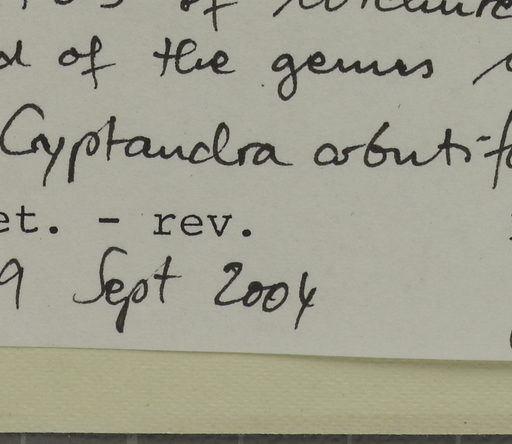 of
of the genus
Cryptandra arbuti-f
et. - rev.
9 Sept 2004